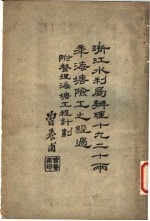 浙江水利局辦理十九二十兩
年海塘險工之經過
附整理海塘工程計劃
曾養甫